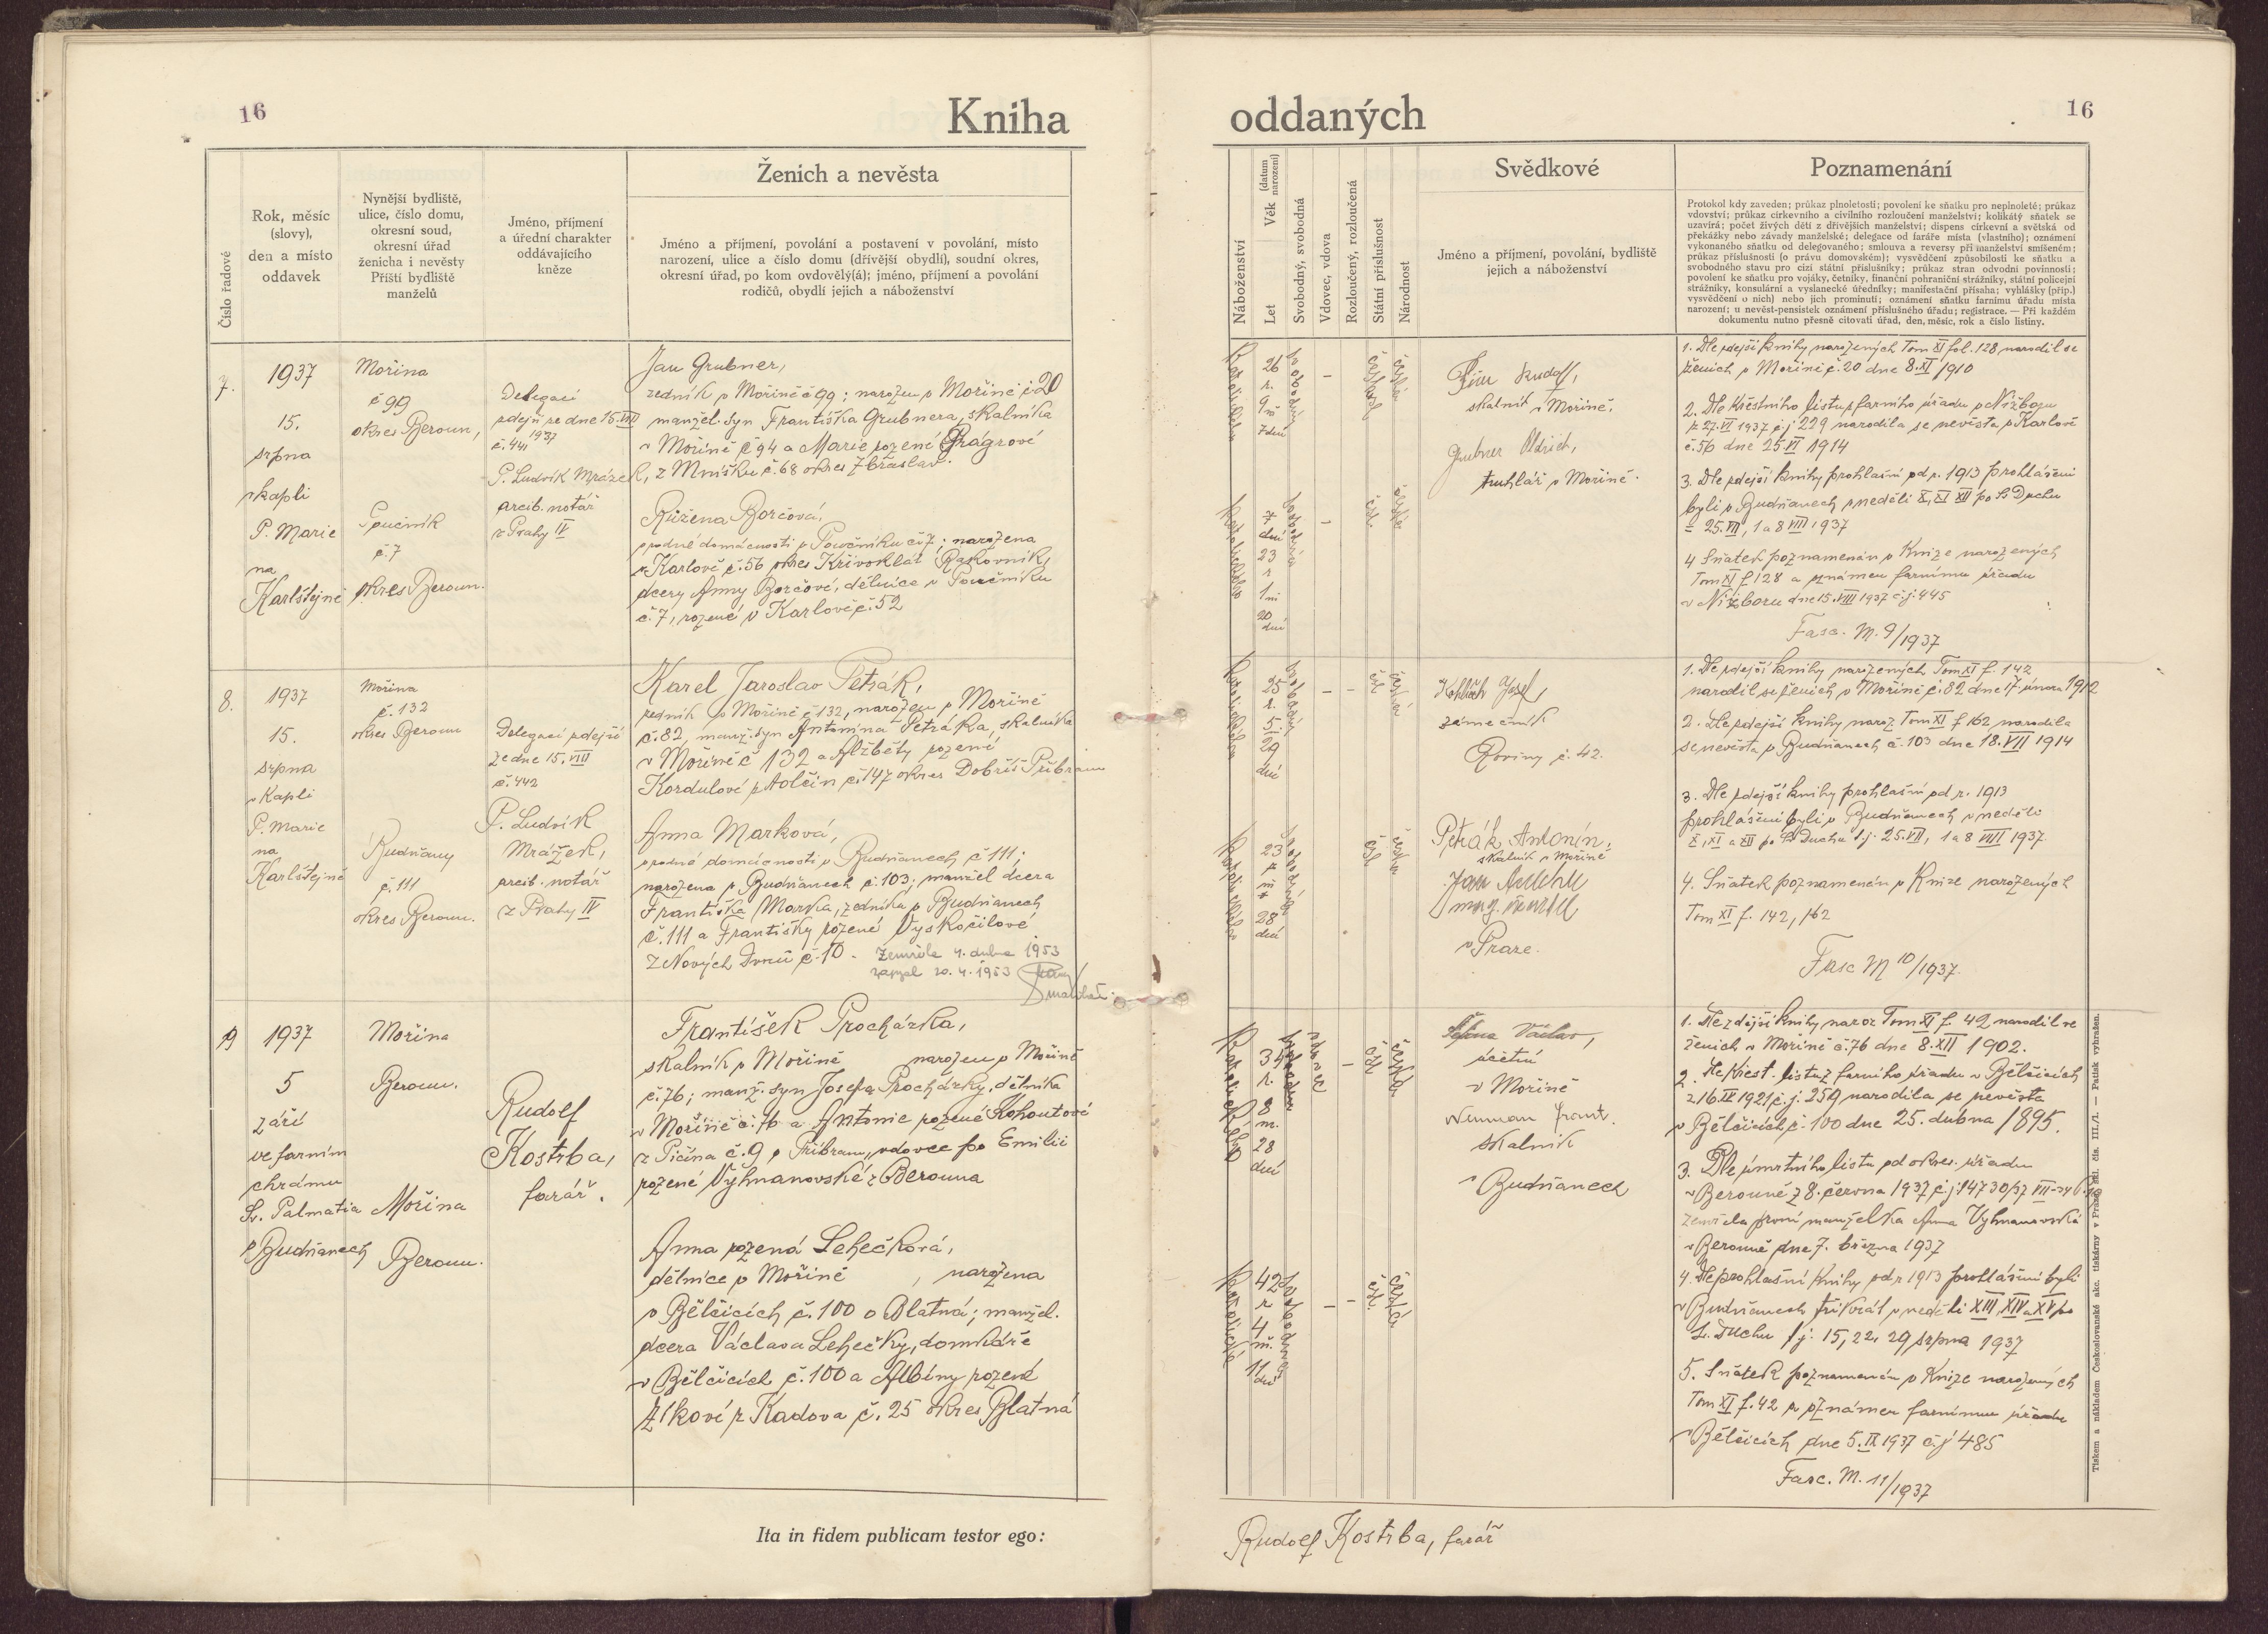 16
Kniha
Číslo řadové
Rok, měsíc
(slovy),
den a místo
oddavek
Nynější bydliště,
ulice, číslo domu,
okresní soud,
okresní úřad
ženicha i nevěsty
Příští bydliště
manželů
Jméno, příjmení
a úřední charakter
oddávajícího
kněze
Ženich a nevěsta
Jméno a příjmení, povolání a postavení v povolání, místo
narození, ulice a číslo domu (dřívější obydlí), soudní okres,
okresní úřad, po kom ovdovělý(á); jméno, příjmení a povolání
rodičů, obydlí jejich a náboženství
7.
1937
15.
srpna
v kapli
P. Marie
na
Karlštejně
Mořina
č 99
okres Beroun,
Poučník
č. 7
okres Beroun.
Delegací
zdejší ze dne 15 VIII
1937
č. 441
P. Ludvík Mrázek,
arcib. notář
z Prahy IV
Jan Grubner,
zedník v Mořině č 99; narozen v Mořině č 20
manžel. syn Františka Grubnera, skalníka
v Mořině č 94 a Marie rozené Grágrové
z Mníšku č. 68 okres Zbraslav.
Růžena Borčová,
v rodné domácnosti v Poučníku č. 7; narozena
v Karlově č. 56 okres Křivoklát Rakovník,
dcery Anny Borčové, dělnice v Poučníku
č. 7, rozené v Karlově č. 52
8.
1937
15.
srpna
v Kapli
P. Marie
na
Karlštejně
Mořina
č. 132
okres Beroun
Budňany
č. 111
okres Beroun.
Delegací zdejší
ze dne 15. VIII
č. 442
P. Ludvík
Mrázek,
arcib. notář
z Prahy IV
Karel Jaroslav Petrák,
zedník v Mořině č 132, narozen v Mořině
č. 82, manž. syn Antonína Petráka, skalníka
v Mořině č 132 a Alžběty rozené
Kordulové z Voločin č. 147 okres Dobříš Příbram
Anna Marková,
v rodné domácnosti v Budňanech č 111;
narozena v Budňanech č. 103; manžel dcera
Františka Marka, zedníka v Budňanech
č. 111 a Františky rozené Vyskočilové
z Nových Dvorů č. 10. Zemřela 4. dubna 1953
zapsal 20. 4. 1953
9
1937
5
září
ve farním
chrámu
Sv. Palmatia
v Budňanech
Mořina
Beroun.
Mořina
Beroun.
Rudolf
Kostrba,
farář.
František Procházka,
skalník v Mořině narozen v Mořině
č. 76; manž. syn Josefa Procházky, dělníka
v Mořině č. 76 a Antonie rozené Kohoutové
z Pičína č. 9 o Příbram, vdovec po Emilii
rozené Vyhnanovské z Berouna
Anna rozená Lehečková,
dělnice v Mořině, narozena
v Bělčicích č. 100 o Blatná; manžel.
dcera Václava Lehečky, domkáře
v Bělčicích č. 100 a Albíny rozené
Zíkové z Kadova č. 25 okres Blatná
Ita in fidem publicam testor ego:
oddaných
16
Náboženství
Věk (datum narození)
Let
Svobodný, svobodná
Vdovec, vdova
Rozloučený, rozloučená
Státní příslušnost
Národnost
Svědkové
Jméno a příjmení, povolání, bydliště
jejich a náboženství
Poznamenání
Protokol kdy zaveden; průkaz plnoletosti; povolení ke sňatku pro nepinoleté; průkaz
vdovství; průkaz církevního a civilního rozloučení manželství; kolikátý sňatek se
uzavírá; počet živých dětí z dřívějších manželství; dispens církevní a světská od
překážky nebo závady manželské; delegace od faráře místa (vlastního); oznámení
vykonaného sňatku od delegovaného; smlouva a reversy při manželství smíšeném;
průkaz příslušnosti (o právu domovském); vysvědčení způsobilosti ke sňatku a
svobodného stavu pro cizí státní příslušníky; průkaz stran odvodní povinnosti;
povolení ke sňatku pro vojáky, četníky, finanční pohraniční strážníky, státní policejní
strážníky, konsulární a vyslanecké úředníky; manifestační přísaha; vyhlášky (příp.)
vysvědčení o nich) nebo jich prominutí; oznámení sňatku farnímu úřadu místa
narození; u nevěst-pensistek oznámení příslušného úřadu; registrace. — Při každém
dokumentu nutno přesně citovati úřad, den, měsíc, rok a číslo listiny.
26
r.
9
7 dní
Rudolf,
skalník v Mořině,
Grubner Oldřich,
truhlář v Mořině.
7
dní
23
r
1 m
20
dní
1. Dle zdejší knihy narozených Tom XI fol. 128 narodil se
ženich v Mořině č. 20 dne 8. XI 1910
2. Dle křestního listu z farního úřadu v Nižboru
z 27. VI 1937 č. j 229 narodila se nevěsta v Karlově
č. 56 dne 25 VI 1914
3. Dle zdejší knihy prohlašní od r. 1913 prohlášeni
byli v Budňanech v neděli X, XI XII po S Duchu
= 25. VII, 1 a 8 VIII 1937
4 Sňatek poznamenán v Knize narozených
Tom XI f. 128 a oznámen farnímu úřadu
v Nižboru dne 15. VIII 1937 č. j. 445
Fasc. M. 9/1937
25
r.
5
29
dní
Josef,
zámečník
Roviny č. 42.
Petrák Antonín,
skalník v Mořině
Jan
v Praze.
23
r
28
dní
1. Dle zdejší knihy narozených Tom XI f. 142
narodil se ženich v Mořině č. 82 dne 17. února 1912
2. Dle zdejší knihy naroz Tom XI f 162 narodila
se nevěsta v Budňanech č. 103 dne 18. VII 1914
3. Dle zdejší knihy prohlašní od r. 1913
prohlášeni byli v Budňanech v neděli
X, XI a XII po S Duchu t. j. 25. VII, 1 a 8 VIII 1937
4. Sňatek poznamenán v Knize narozených
Tom XI f. 142, 162
Fasc M 10/1937.
34
r.
8
m.
28
dní
Václav,
účetní
v Mořině
Neuman Frant.
skalník
v Budňanech
42
r
4
m.
11
dní
1. Dle zdejší knihy naroz Tom XI f 42 narodil se
ženich v Mořině č. 76 dne 8. XII 1902.
2. Dle křest. listu z farního úřadu v Bělčicích
z 16 IX 1921 č. j. 259 narodila se nevěsta
v Bělčicích č. 100 dne 25. dubna 1895.
3. Dle úmrtního listu od okres. úřadu
v Berouně z 8. června 1937 č. j. 14730/37
zemřela první manželka Anna Vyhnanovská
v Berouně dne 7. března 1937
4. Dle prohlašní knihy od r 1913 prohlášeni byli
v Budňanech třikrát v neděli XIII, XIV a XV po
S. Duchu t. j. 15, 22, 29 srpna 1937
5. Sňatek poznamenán v Knize narozených
Tom XI f. 42 a oznámen farnímu úřadu
v Bělčicích dne 5. IX 1937 č. j 485
Fasc. M. 11/1937
Rudolf Kostrba, farář
Tiskem a nákladem Československé akc. tiskárny v Praze. Skl. čís. III./1. — Patisk vyhražen.